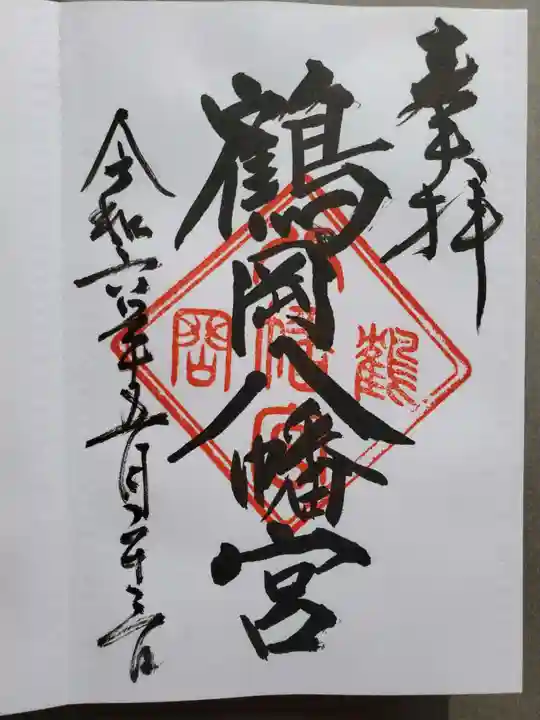 奉拝
鶴岡八幡宮
鶴
八幡宮
岡
令和六年五月二十三日